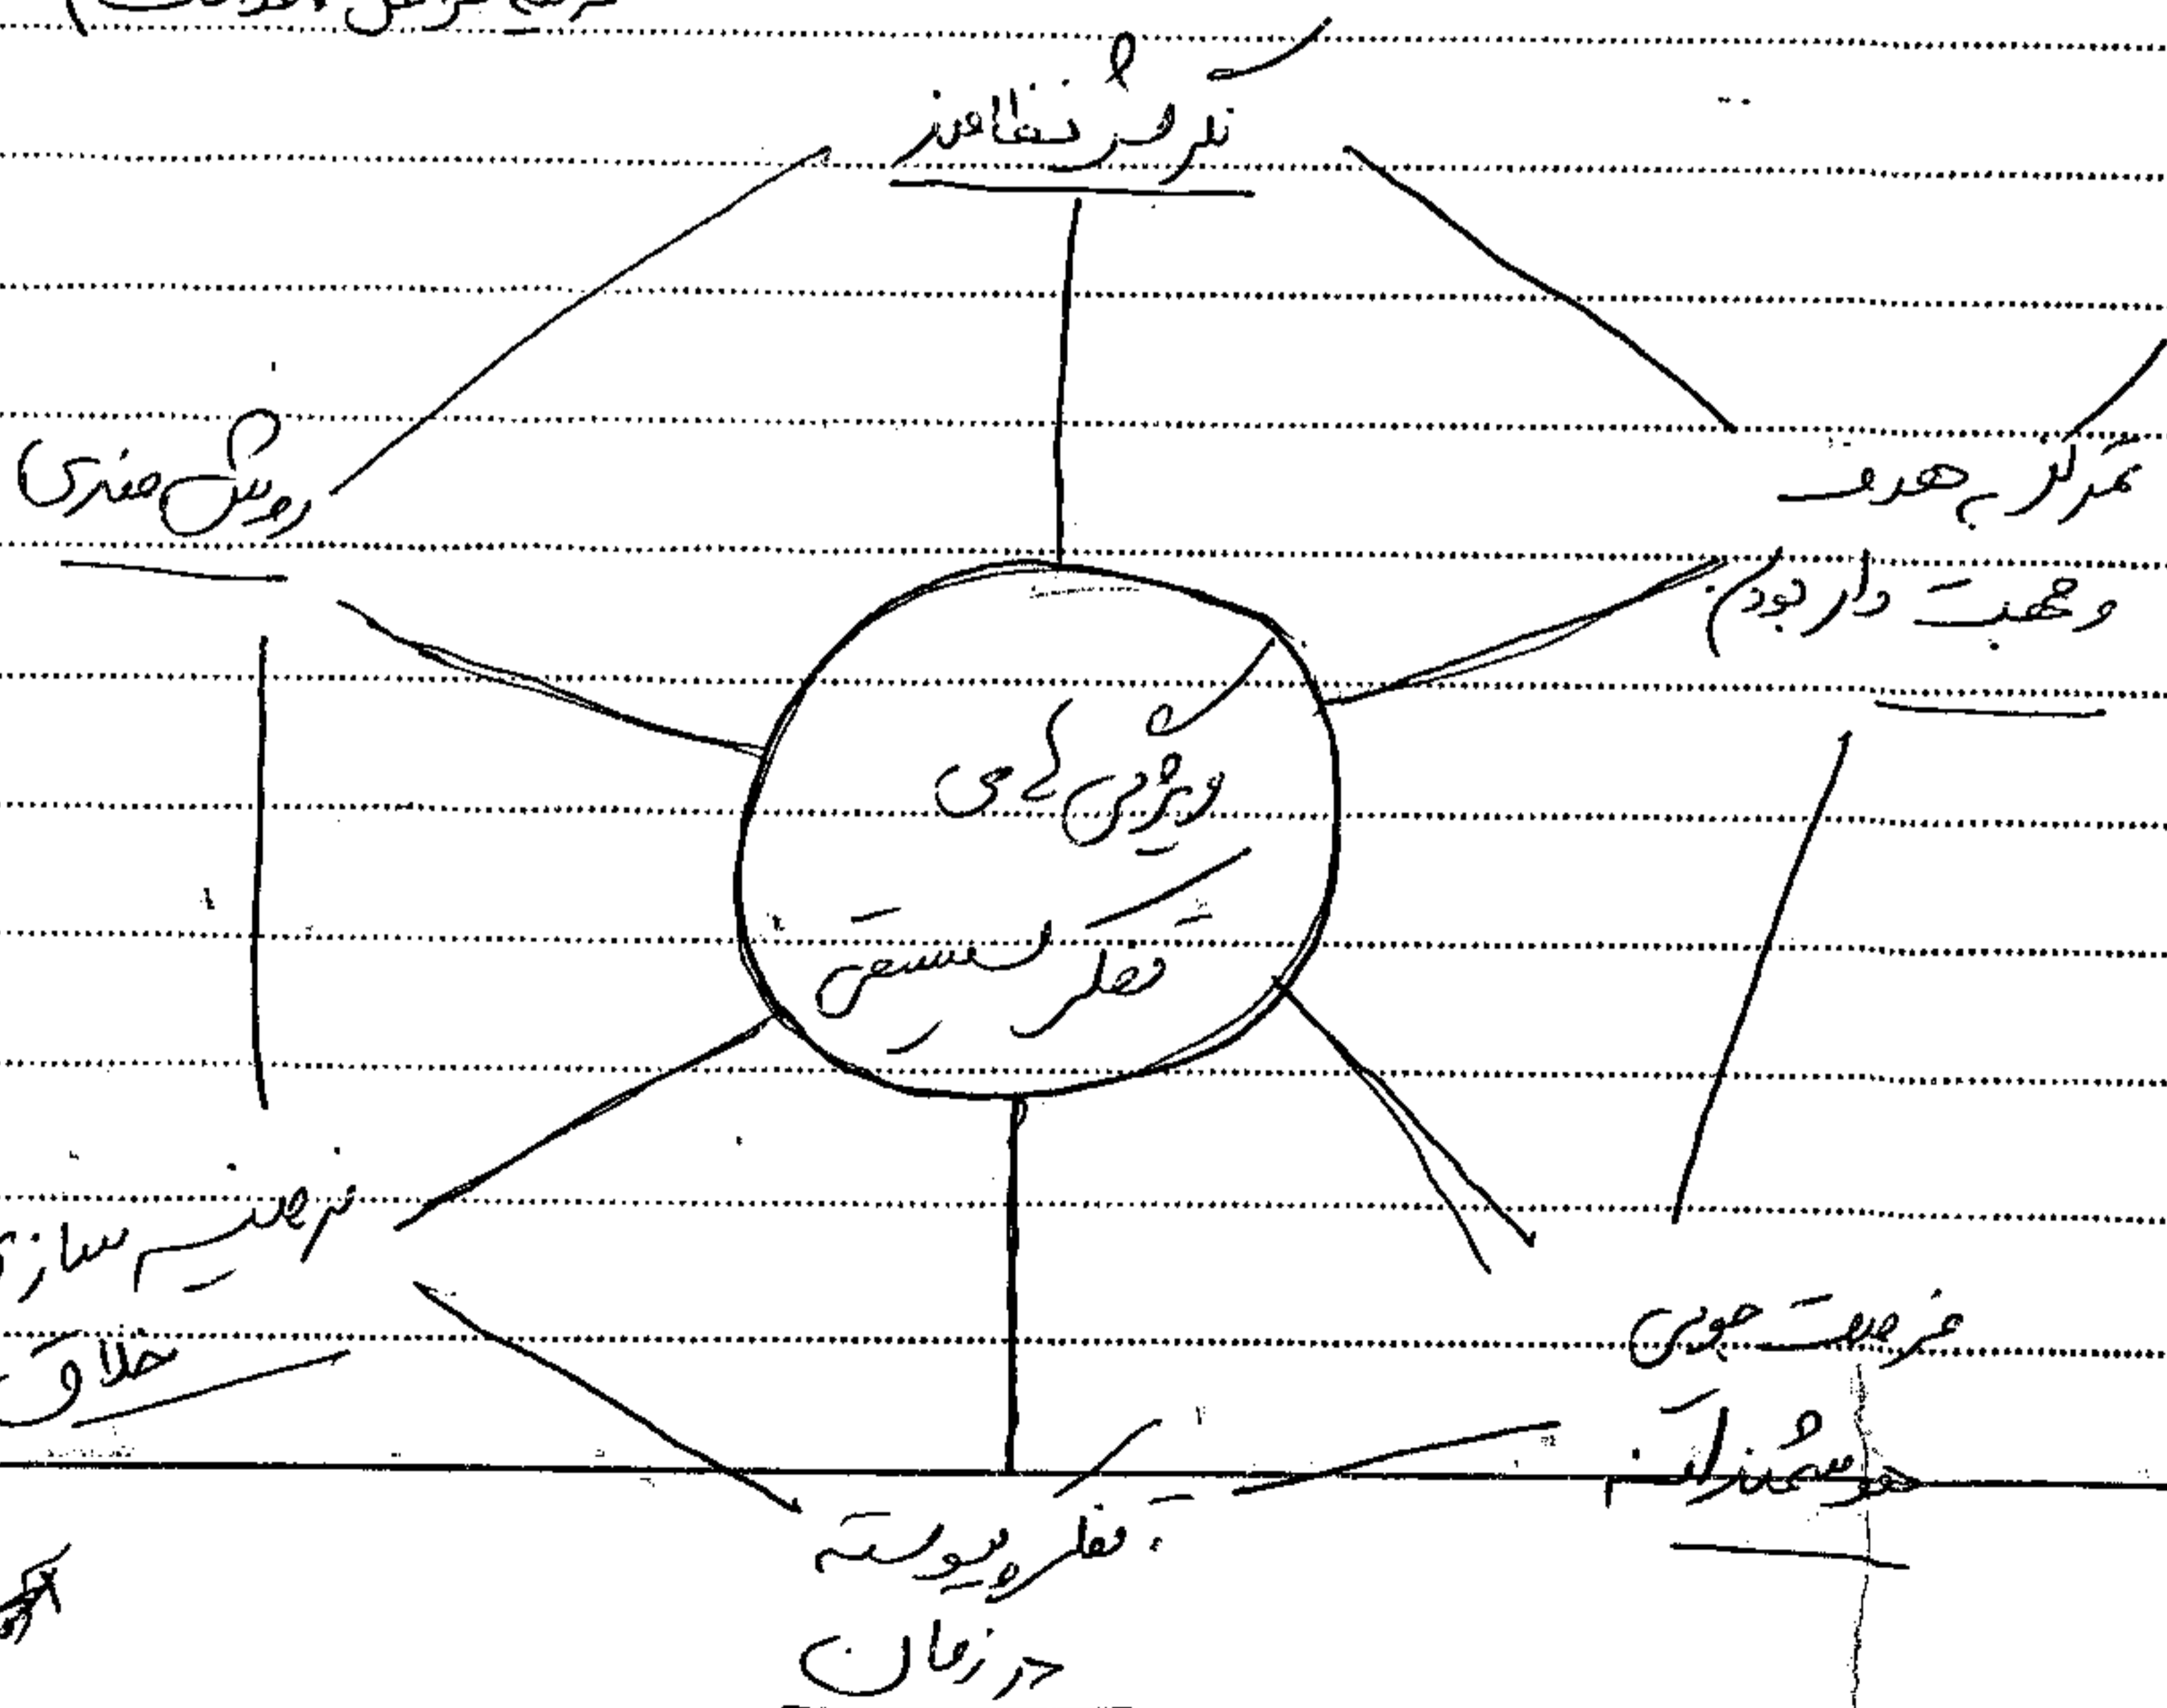 نگرش نظامند
تمرکز به هدف
و جهت دار بودن
روش مندی
ویژگی های
تفکر سیستمی
فرضیه سازی
خلاق
فرصت جویی
هوشمندانه
تفکر پیوسته
در زمان